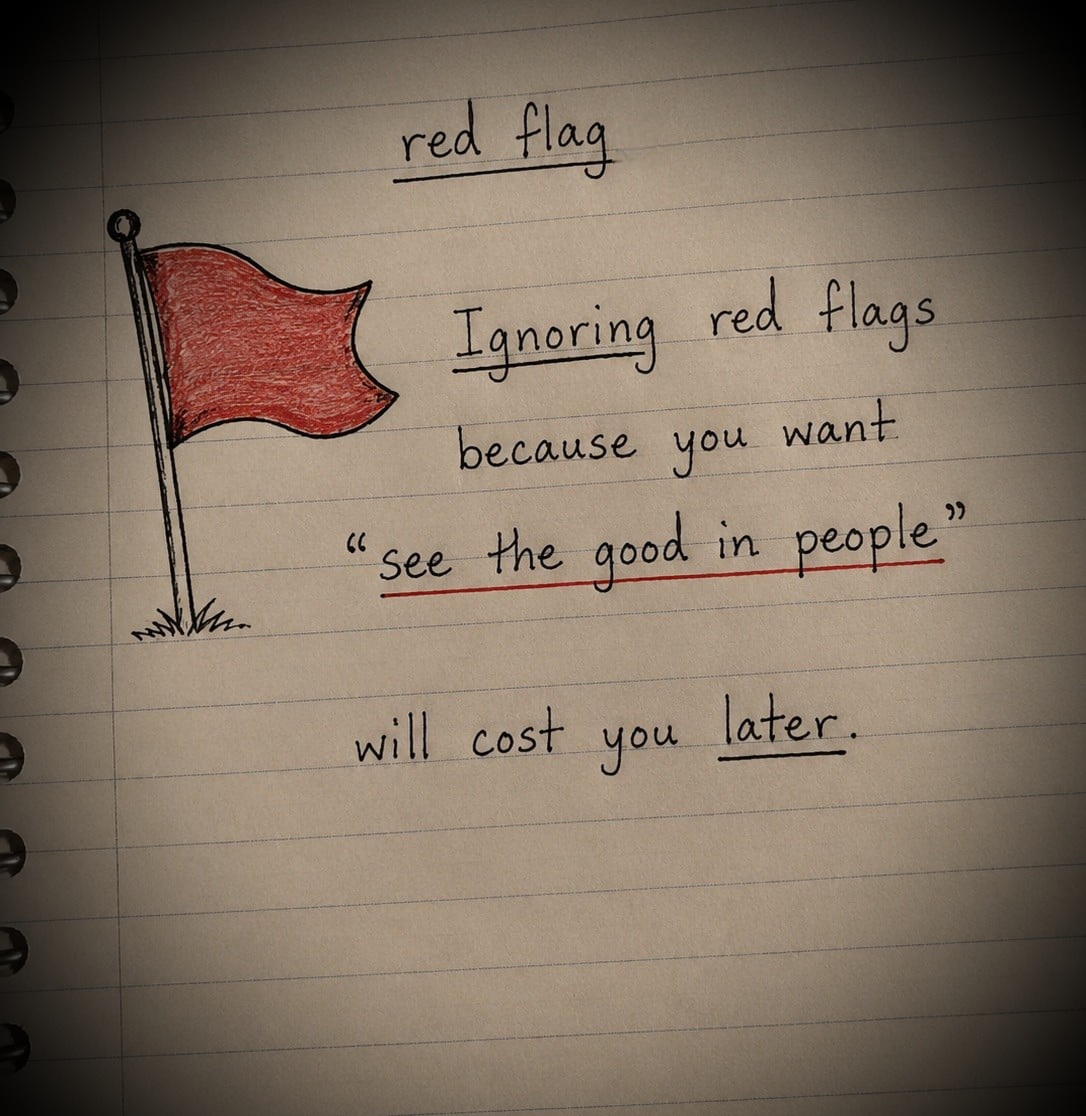 red flag
Ignoring red flags
because you want
“see the good in people”
will cost you later.